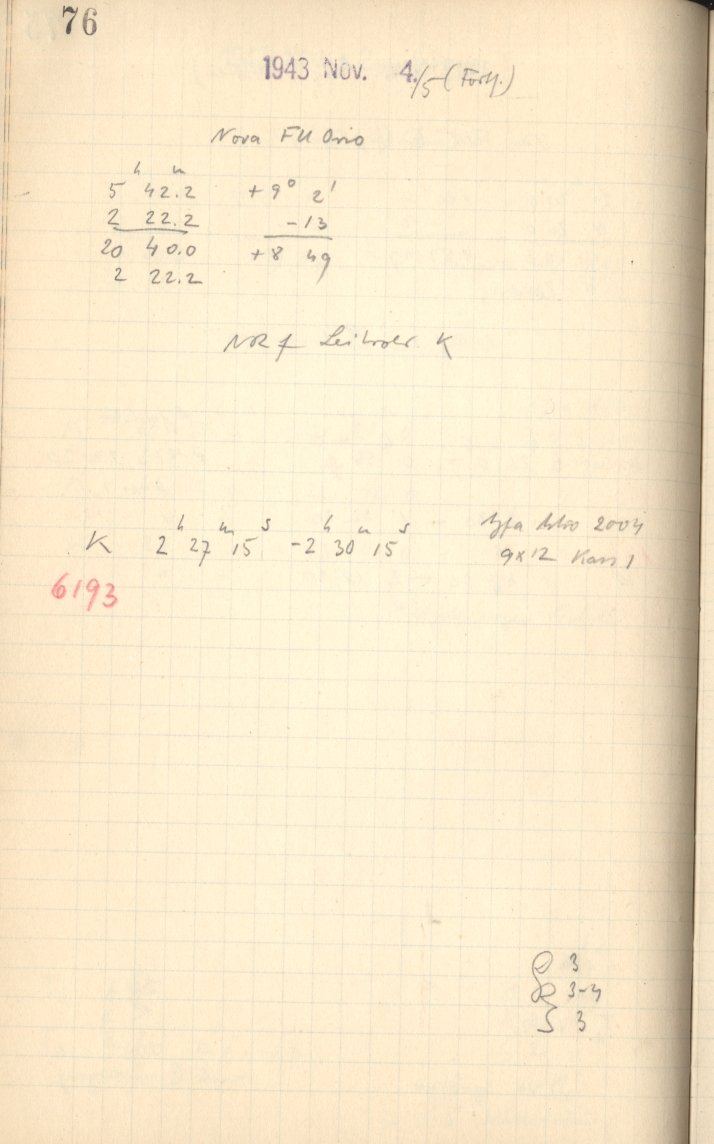 76
1943 Nov. 4./5 (Forts.)
Nova FU Orio
5 h 42.2 m +9° 2'
2 22.2 -13
20 40.0 +8 49
2 22.2
K
K 2 h 27 m 15 s -2 h 30 m 15 s
Agfa Astro 2004
9x12 Kass 1
6193
3
3-4
S 3